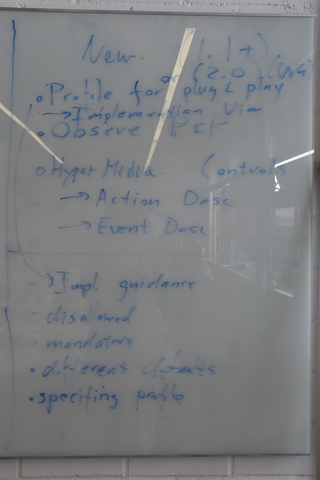 New. (1.1+)
or (2.0)
• Profile for plug & play
→ Implementation Via
• Observe
• HyperMedia Controls
→ Action Desc
→ Event Desc
→ Impl. guidance
- disallowed
- mandatory
• different
• specifing profile